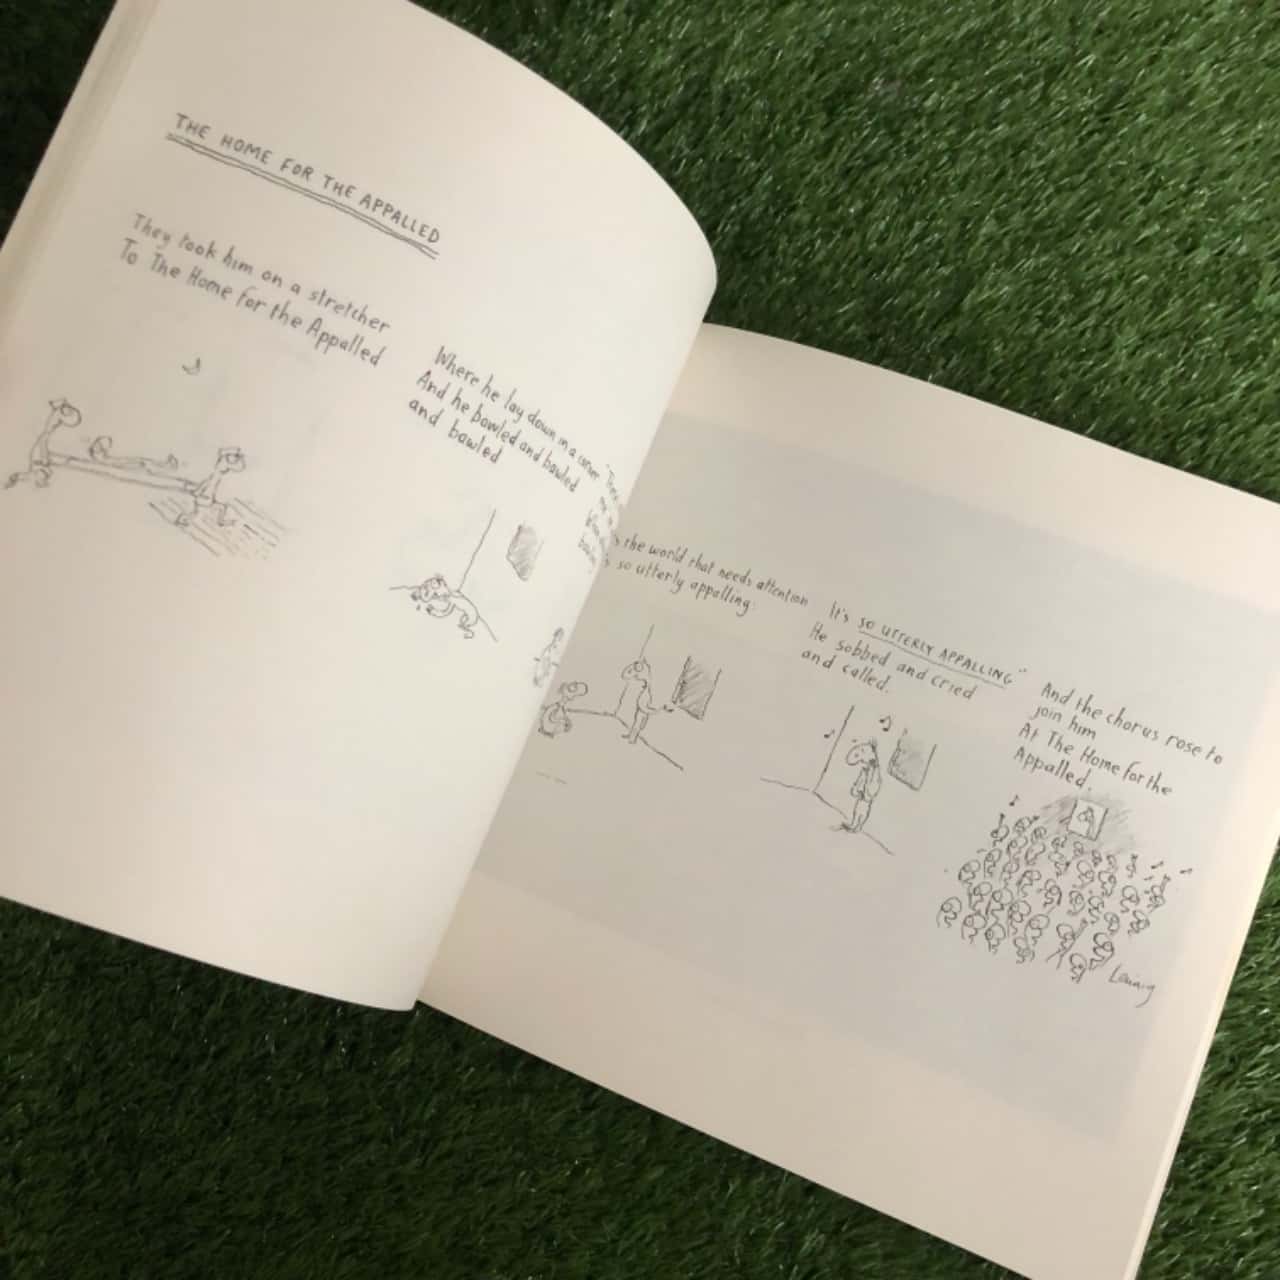 THE HOME FOR THE APPALLED
They took him on a stretcher
To The Home for the Appalled
Where he lay down in a corner
And he bawled and bawled
and bawled
the world that needs attention
so utterly appalling.
It's SO UTTERLY APPALLING"
He sobbed and cried
and called.
And the chorus rose to
join him
At The Home for the
Appalled.
Leunig